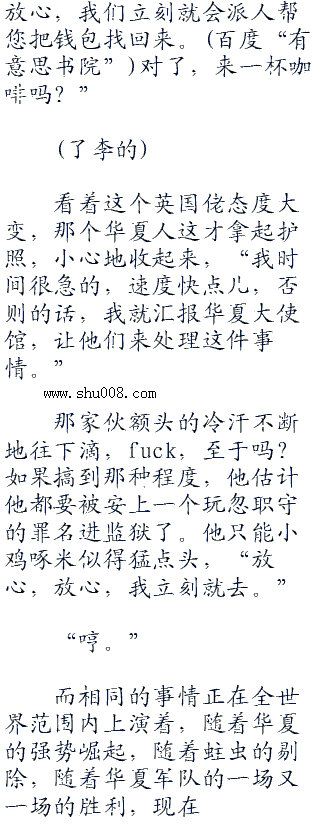 放心，我们立刻就会派人帮
您把钱包找回来。(百度“有
意思书院”)对了，来一杯咖
啡吗？”
(了李的)
看着这个英国佬态度大
变，那个华夏人这才拿起护
照，小心地收起来，“我时
间很急的，速度快点儿，否
则的话，我就汇报华夏大使
馆，让他们来处理这件事
情。”
www.shu008.com
那家伙额头的冷汗不断
地往下滴，fuck，至于吗？
如果搞到那种程度，他估计
他都要被安上一个玩忽职守
的罪名进监狱了。他只能小
鸡啄米似得猛点头，“放
心，放心，我立刻就去。”
“哼。”
而相同的事情正在全世
界范围内上演着，随着华夏
的强势崛起，随着蛀虫的剔
除，随着华夏军队的一场又
一场的胜利，现在